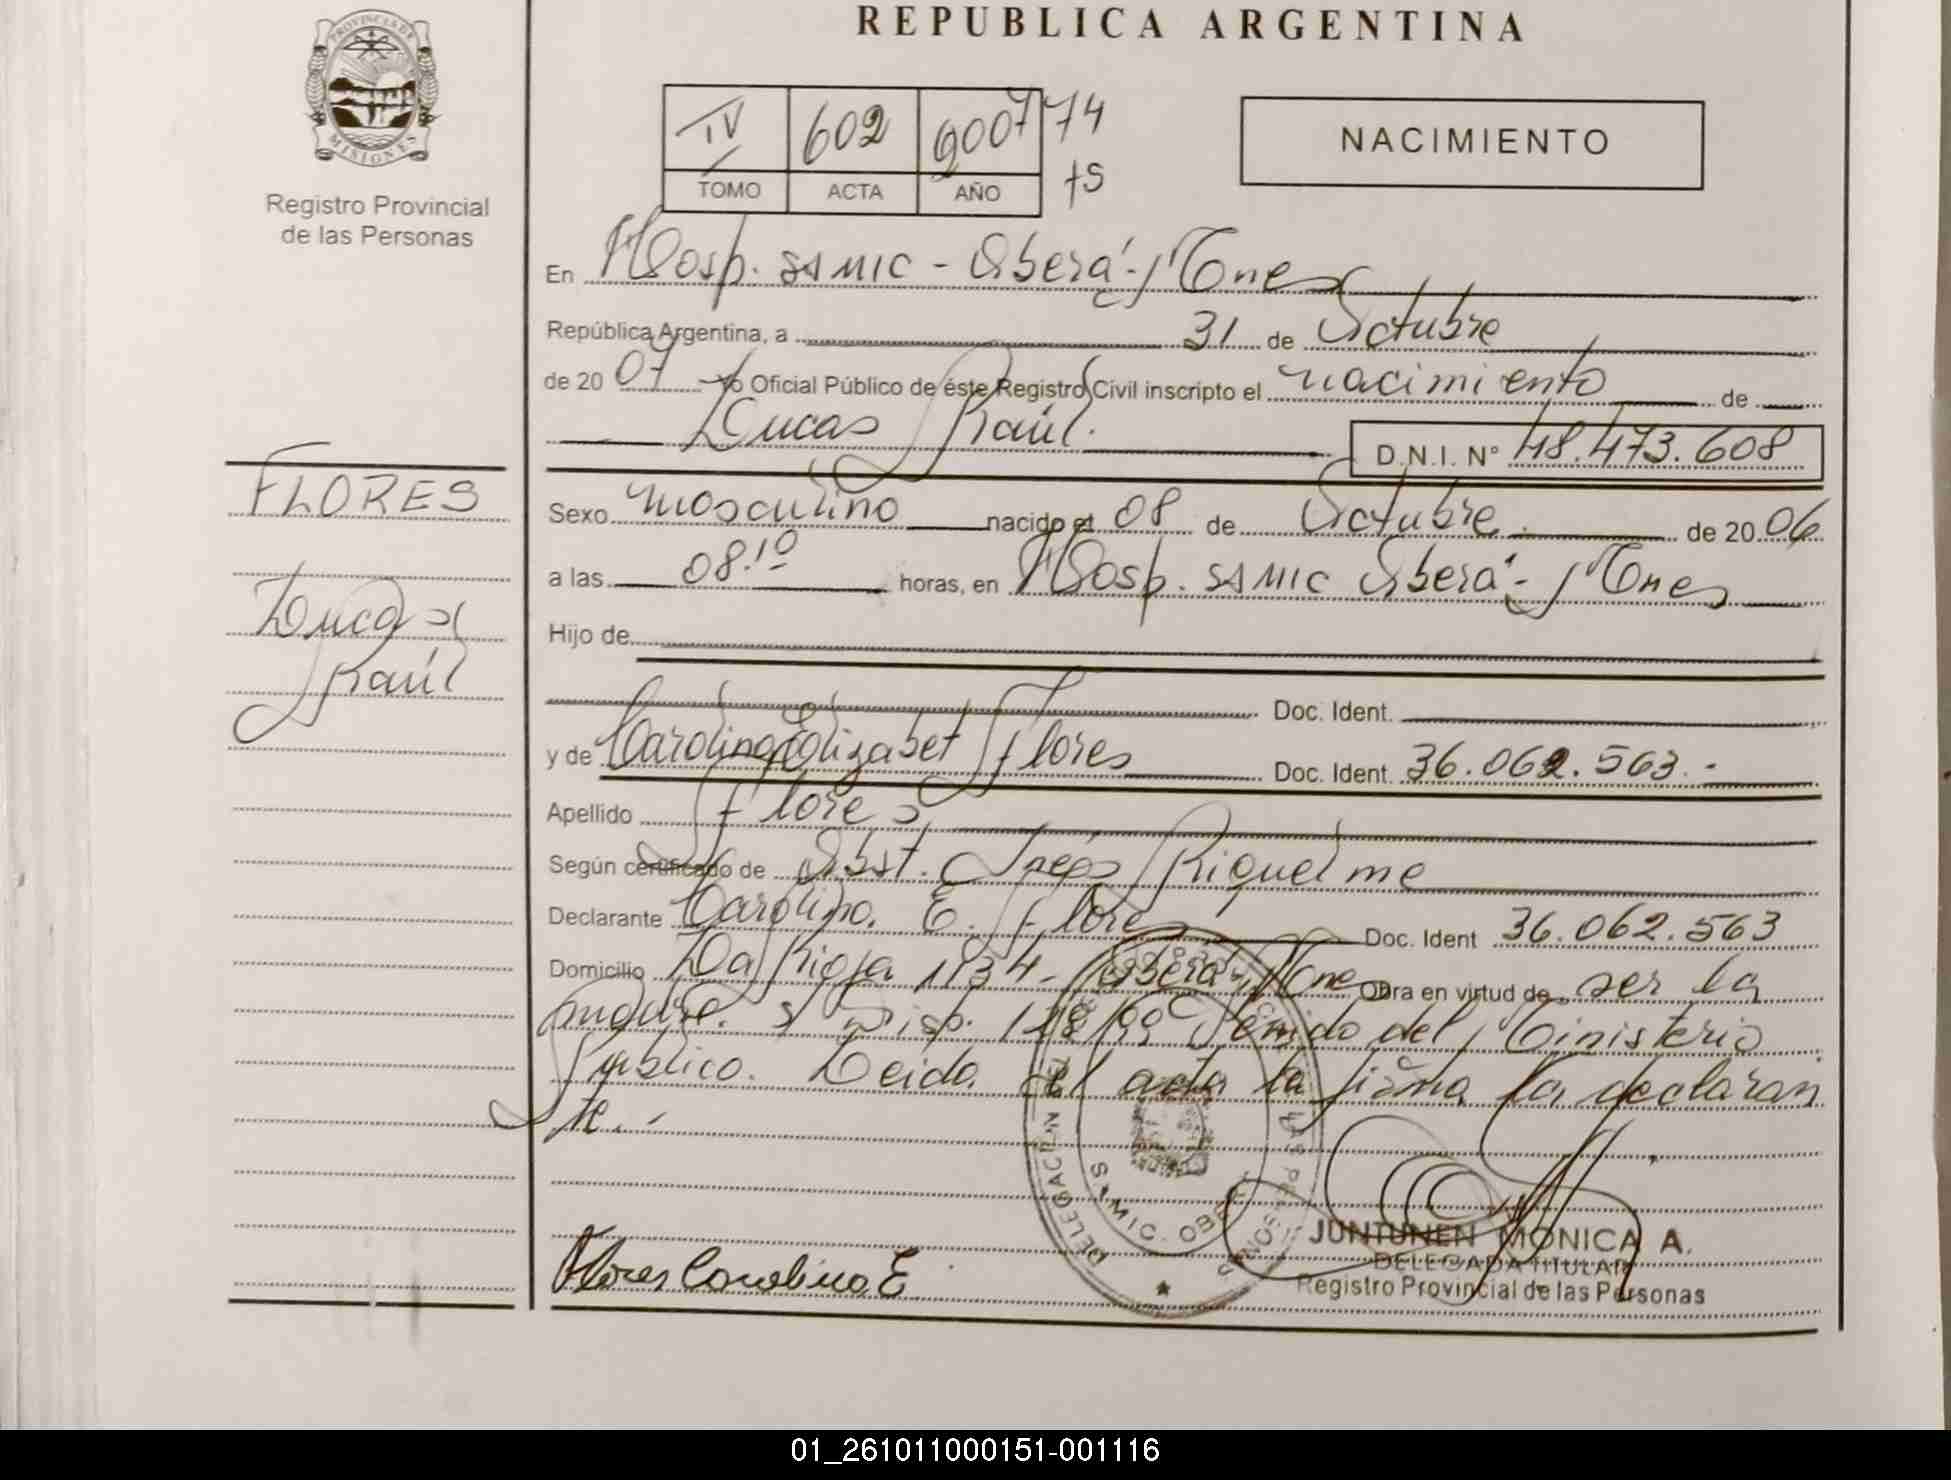 REPUBLICA ARGENTINA
PROVINCIA DE
MISIONES
Registro Provincial
de las Personas
IV 602 2007 74
TOMO ACTA AÑO
NACIMIENTO
En Hosp. SAMIC - Oberá - Mnes
República Argentina, a 31 de Octubre
de 20 07 Yo Oficial Público de éste Registro Civil inscripto el nacimiento de
Lucas Raúl. D.N.I. N° 48.473.608
FLORES
Lucas
Raúl
Sexo masculino nacido el 08 de Octubre. de 20 06
a las 08.10 horas, en Hosp. SAMIC Oberá - Mnes
Hijo de
Doc. Ident.
y de Carolina Elizabet Flores Doc. Ident. 36.062.563.-
Apellido Flores
Según certificado de Obst. Inés Riquelme
Declarante Carolina. E. Flores Doc. Ident 36.062.563
Domicilio La Rioja 1134 - Oberá Mnes Obra en virtud de ser la
madre. S/ Disp. del Ministerio
Publico. Leida el acta la firma la declaran
te.-
DELEGACION DEL
S.A.MIC. OBERA
JUNTUNEN MONICA A.
DELEGADA TITULAR
Registro Provincial de las Personas
Flores Carolina E
01_261011000151-001116